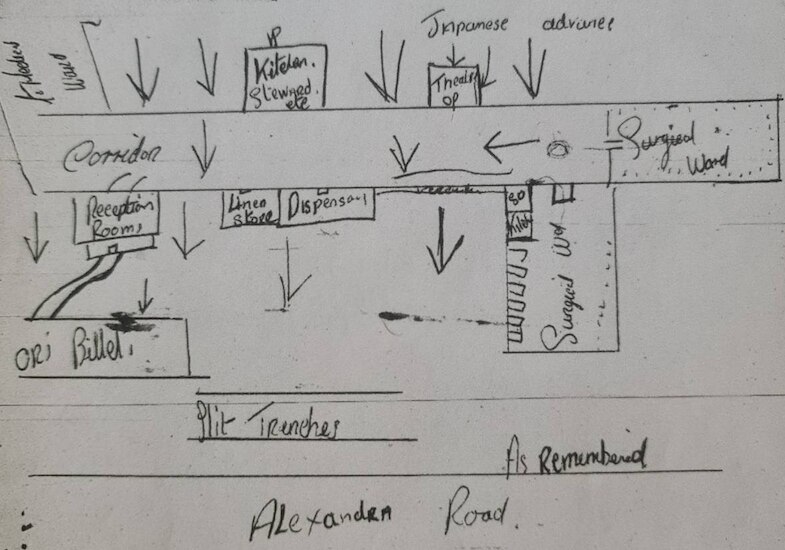 Japanese advance
Ward
Kitchen.
Steward.
etc
Theatre
OP
Corridor
Surgical
Ward
Reception
Rooms
Linen
Store
Dispensary
Surgical
ORs Billet.
Slit Trenches
As Remembered
Alexandra Road.